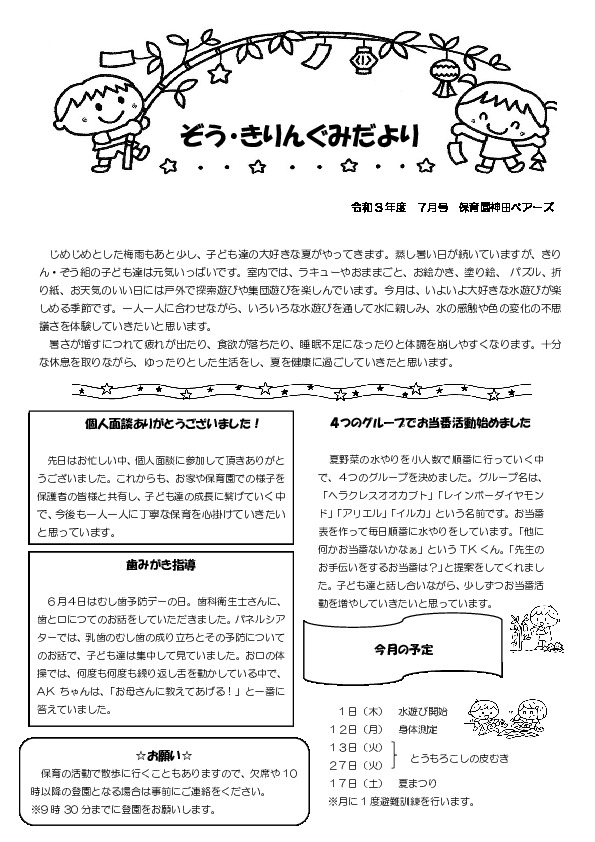 ぞう・きりんぐみだより
令和3年度　7月号　保育園神田ベアーズ
じめじめとした梅雨もあと少し、子ども達の大好きな夏がやってきます。蒸し暑い日が続いていますが、きり
ん・ぞう組の子ども達は元気いっぱいです。室内では、ラキューやおままごと、お絵かき、塗り絵、 パズル、折
り紙、お天気のいい日には戸外で探索遊びや集団遊びを楽しんでいます。今月は、いよいよ大好きな水遊びが楽
しめる季節です。一人一人に合わせながら、いろいろな水遊びを通して水に親しみ、水の感触や色の変化の不思
議さを体験していきたいと思います。
暑さが増すにつれて疲れが出たり、食欲が落ちたり、睡眠不足になったりと体調を崩しやすくなります。十分
な休息を取りながら、ゆったりとした生活をし、夏を健康に過ごしていきたと思います。
個人面談ありがとうございました！
先日はお忙しい中、個人面談に参加して頂きありがと
うございました。これからも、お家や保育園での様子を
保護者の皆様と共有し、子ども達の成長に繋げていく中
で、今後も一人一人に丁寧な保育を心掛けていきたい
と思っています。
歯みがき指導
6月4日はむし歯予防デーの日。歯科衛生士さんに、
歯と口につてのお話をしていただきました。パネルシア
ターでは、乳歯のむし歯の成り立ちとその予防について
のお話で、子ども達は集中して見ていました。お口の体
操では、何度も何度も繰り返し舌を動かしている中で、
AK ちゃんは、「お母さんに教えてあげる！」と一番に
答えていました。
☆お願い☆
保育の活動で散歩に行くこともありますので、欠席や10
時以降の登園となる場合は事前にご連絡をください。
※9時30分までに登園をお願いします。
4つのグループでお当番活動始めました
夏野菜の水やりを小人数で順番に行っていく中
で、4つのグループを決めました。グループ名は、
「ヘラクレスオオカブト」「レインボーダイヤモン
ド」「アリエル」「イルカ」という名前です。お当番
表を作って毎日順番に水やりをしています。「他に
何かお当番ないかなぁ」というTKくん。「先生の
お手伝いをするお当番は？」と提案をしてくれまし
た。子ども達と話し合いながら、少しずつお当番活
動を増やしていきたいと思っています。
今月の予定
1日（木）　水遊び開始
12日（月）　身体測定
13日（火）
27日（火）
とうもろこしの皮むき
17日（土）　夏まつり
※月に1度避難訓練を行います。